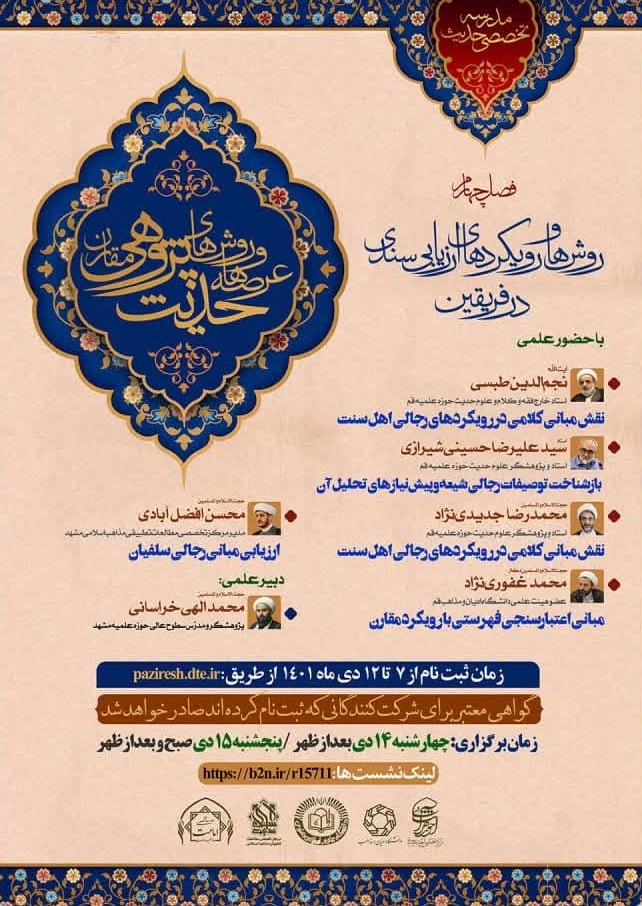 مدرسه
تخصصی حدیث
عرصه‌ها و روش‌های
حدیث پژوهی مقارن
فصل چهارم
روش‌ها و رویکردهای ارزیابی سندی
در فریقین
با حضور علمی
آیت‌الله
نجم‌الدین طبسی
استاد خارج فقه و کلام و علوم حدیث حوزه علمیه قم
نقش مبانی کلامی در رویکردهای رجالی اهل سنت
استاد
سید علیرضا حسینی شیرازی
استاد و پژوهشگر علوم حدیث حوزه علمیه قم
بازشناخت توصیفات رجالی شیعه و پیش نیازهای تحلیل آن
حجت‌الاسلام و المسلمین
محمدرضا جدیدی‌نژاد
استاد و پژوهشگر علوم حدیث حوزه علمیه قم
نقش مبانی کلامی در رویکردهای رجالی اهل سنت
حجت‌الاسلام و المسلمین دکتر
محمد غفوری‌نژاد
عضو هیئت علمی دانشگاه ادیان و مذاهب قم
مبانی اعتبارسنجی فهرستی با رویکرد مقارن
حجت‌الاسلام و المسلمین
محسن افضل آبادی
مدیر مرکز تخصصی مطالعات تطبیقی مذاهب اسلامی مشهد
ارزیابی مبانی رجالی سلفیان
دبیر علمی:
حجت‌الاسلام و المسلمین
محمد الهی خراسانی
پژوهشگر و مدرس سطوح عالی حوزه علمیه مشهد
زمان ثبت نام از ۷ تا ۱۲ دی ماه ۱۴۰۱ از طریق: paziresh.dte.ir
گواهی معتبر برای شرکت‌کنندگانی که ثبت نام کرده‌اند صادر خواهد شد
زمان برگزاری: چهارشنبه ۱۴ دی بعد از ظهر / پنجشنبه ۱۵ دی صبح و بعد از ظهر
لینک نشست‌ها: https://b2n.ir/r15711
دانشگاه ادیان و مذاهب